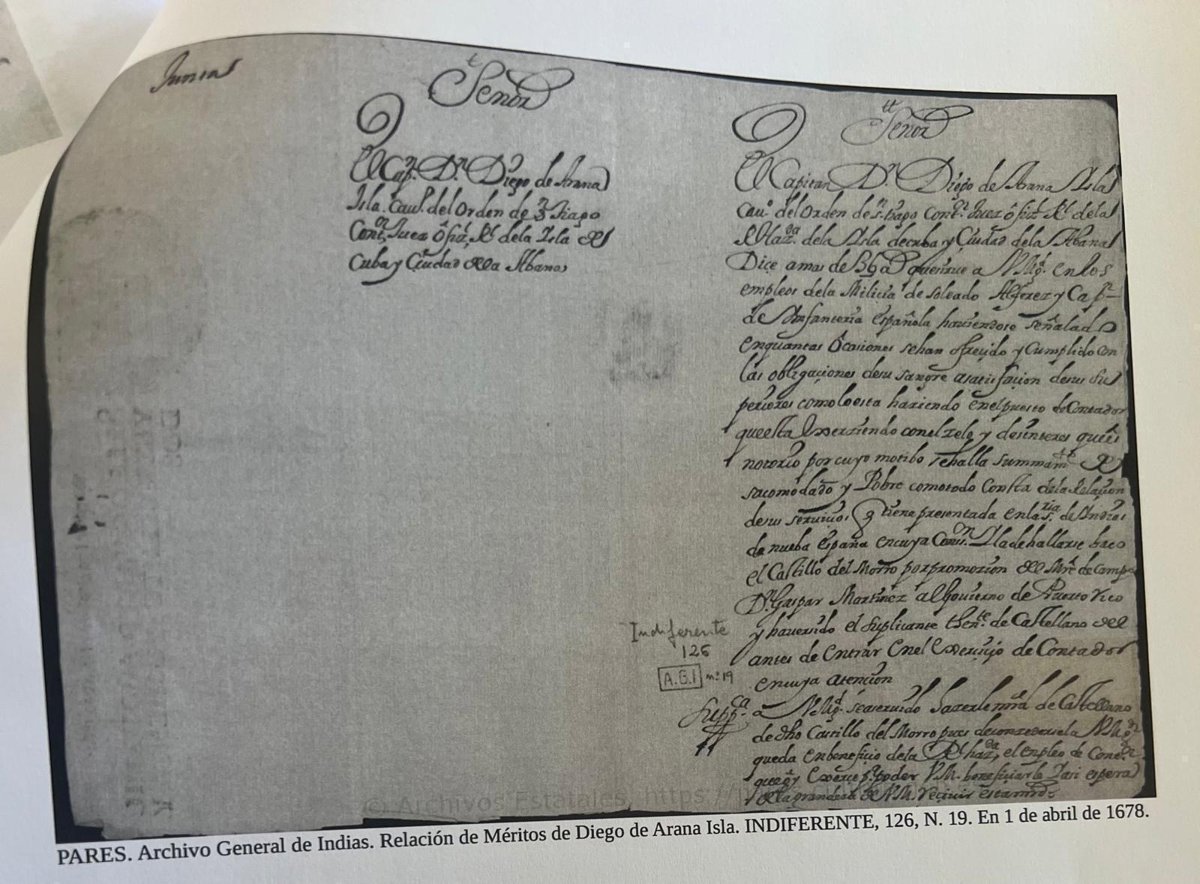 Junta
Señor
El Cap.n D.n Diego de Arana
Isla. Cau.o del Orden de S.n Tiago
Cont.or Juez ofiz.l R.l dela Isla de
Cuba y Ciudad dela Abana
Indiferente
126
A.G.I nº 19
Señor
El Capitan D.n Diego de Arana Isla
Cau.o del Orden de S.n tiago Cont.or Juez ofiz.l R.l dela
R.l Haz.da dela Isla de cuba y Ciudad dela Abana
Dice a mas de que sirue a V. Mg.d en los
empleos dela Milicia de Soldado Alferez y Cap.n
de Infanteria española hauiendose señalado
en quantas ocasiones sehan ofrecido y Cumplido con
las obligaciones desu sangre asatisfacion desus su
periores como lo esta haziendo en el puesto de Contador
que esta exerziendo con el zelo y desinteres que es
notorio por cuyo motibo se halla summam.te de
sacomodado y Pobre como todo Consta de la Relaçion
de sus seruiçios q tiene presentada en la s.ria de Indias
de nueba españa en cuya Cons.on Ila de hallarse baco
el Castillo del Morro por promozion del M.re de Campo
D.n Gaspar Martinez al Gouierno de Puerto Rico
y hauer sido el suplicante then.te de Castellano del
antes de Entrar en el Exerziçio de Contador
en cuya atencion
Supp.ca a V. Mg.d sea seruido hazerle m.rd de Castellano
de dho Castillo del Morro pues de conzedersela V. Mg.d
queda en beneficio dela R.l haz.da el empleo de Cont.or
que oy exerçe p.r poder V.M. beneficiarle Assi espera
dela grandeza de V.M. reçiuir esta m.rd
© Archivos Estatales, https://
PARES. Archivo General de Indias. Relación de Méritos de Diego de Arana Isla. INDIFERENTE, 126, N. 19. En 1 de abril de 1678.